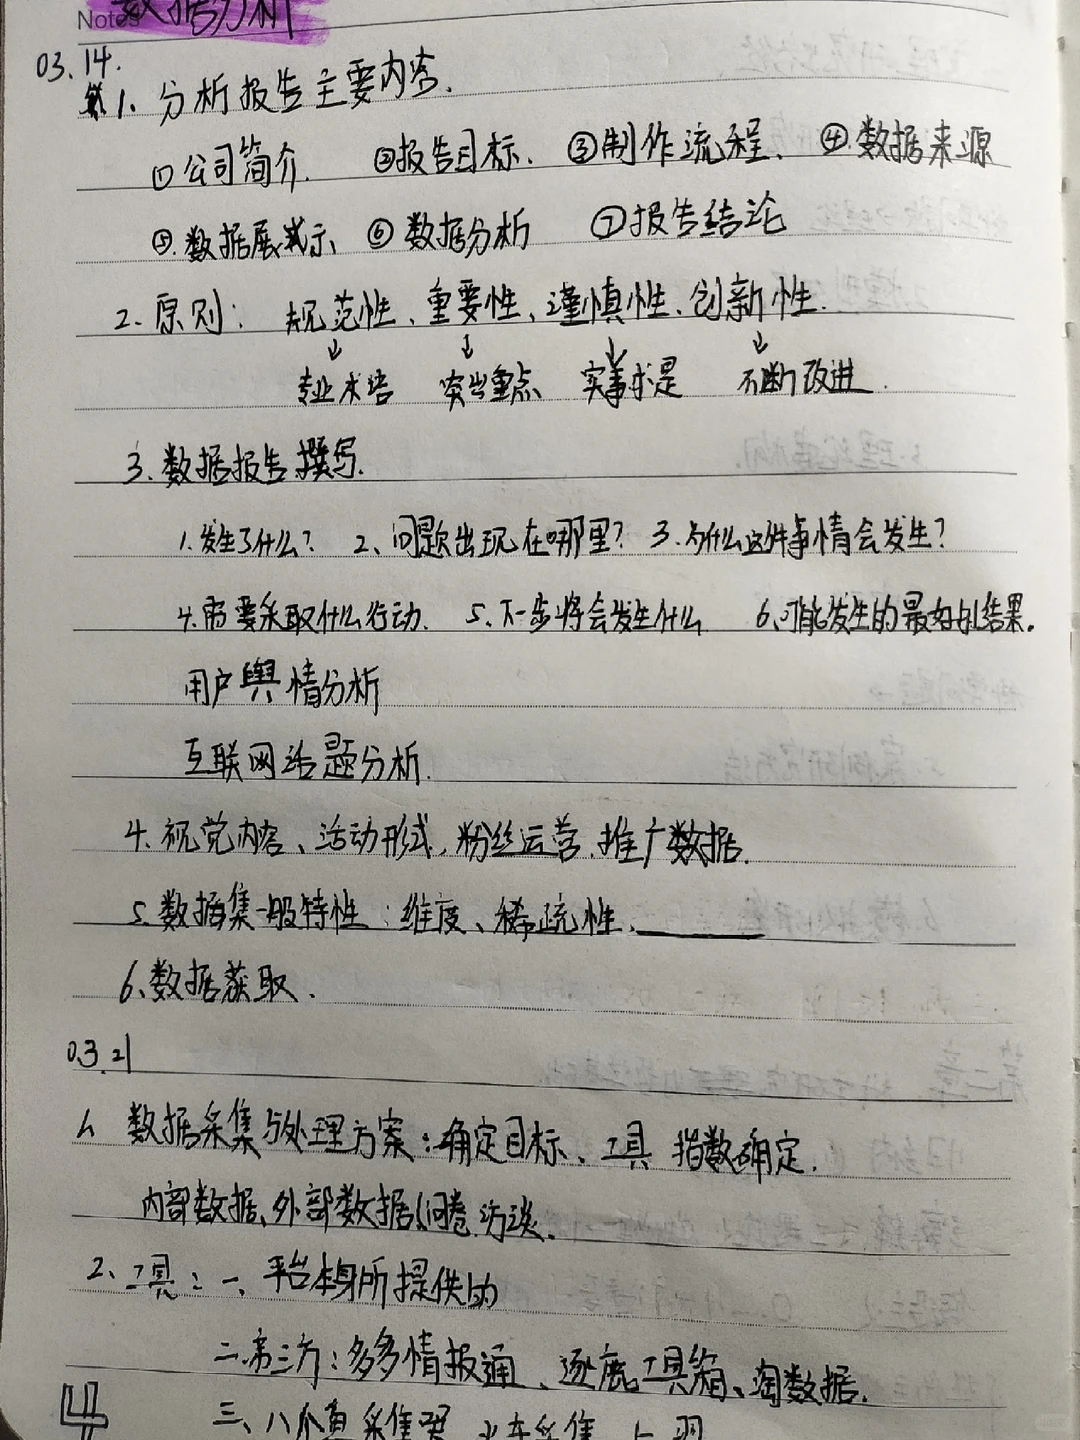 Notes 数据分析
03.14.
1、分析报告主要内容.
①公司简介. ②报告目标. ③制作流程. ④数据来源
⑤.数据展示、⑥数据分析 ⑦报告结论
2、原则: 规范性、重要性、谨慎性、创新性.
↓ ↓ ↓ ↓
专业术语 突出重点 实事求是 不断改进.
3.数据报告撰写.
1.发生了什么? 2、问题出现在哪里? 3.为什么这件事情会发生?
4.需要采取什么行动. 5.下一步将会发生什么 6.可能发生的最好的结果.
用户舆情分析
互联网话题分析.
4.视觉内容、活动形式,粉丝运营.推广数据.
5.数据集一般特性:维度、稀疏性、
6、数据获取.
03.21
1. 数据采集与处理方案:确定目标、工具 指数确定.
内部数据、外部数据(问卷.访谈.
2、工具:一、平台本身所提供的
二.第三方:多多情报通、逐鹿工具箱、淘数据.
三、八 采集器 火车采集
4